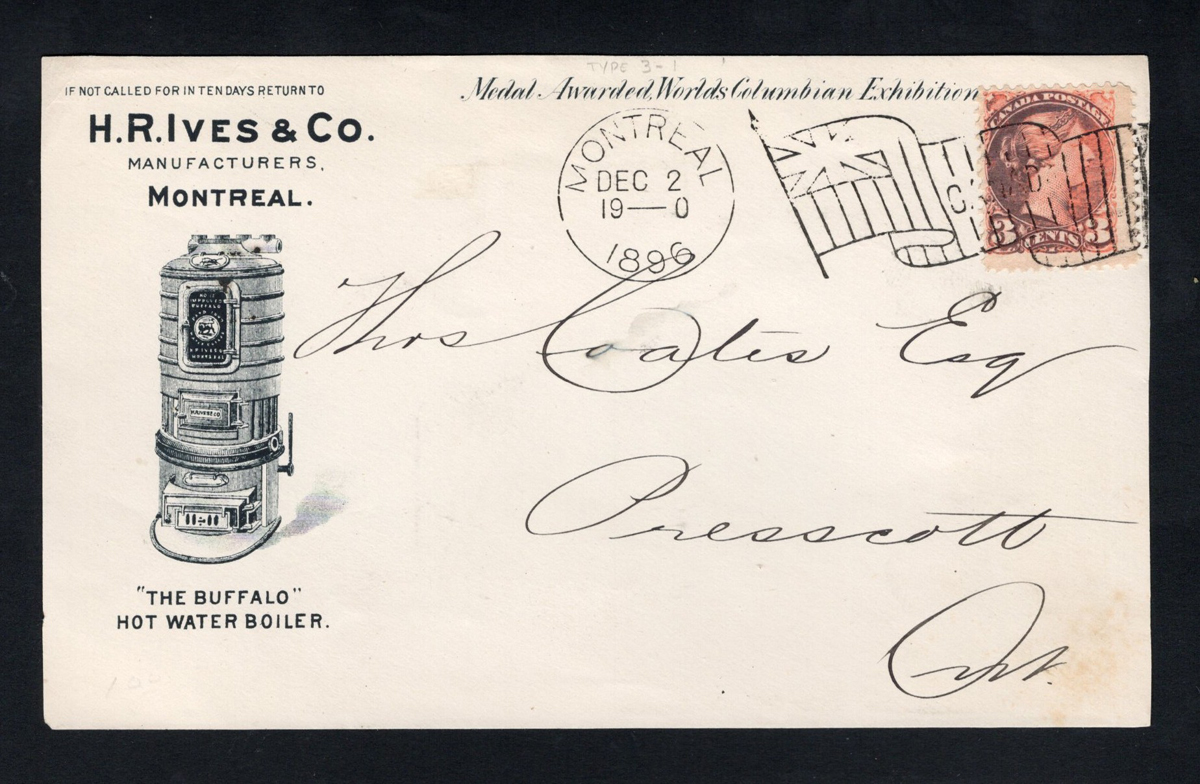 TYPE 3-1
IF NOT CALLED FOR IN TEN DAYS RETURN TO
H.R. IVES & CO.
MANUFACTURERS,
MONTREAL.
Medal Awarded, Worlds Columbian Exhibition
MONTREAL
DEC 2
19—0
1896
CANADA POSTAGE
3 CENTS 3
Thos Coates Esq
Presscott
Ont.
"THE BUFFALO"
HOT WATER BOILER.